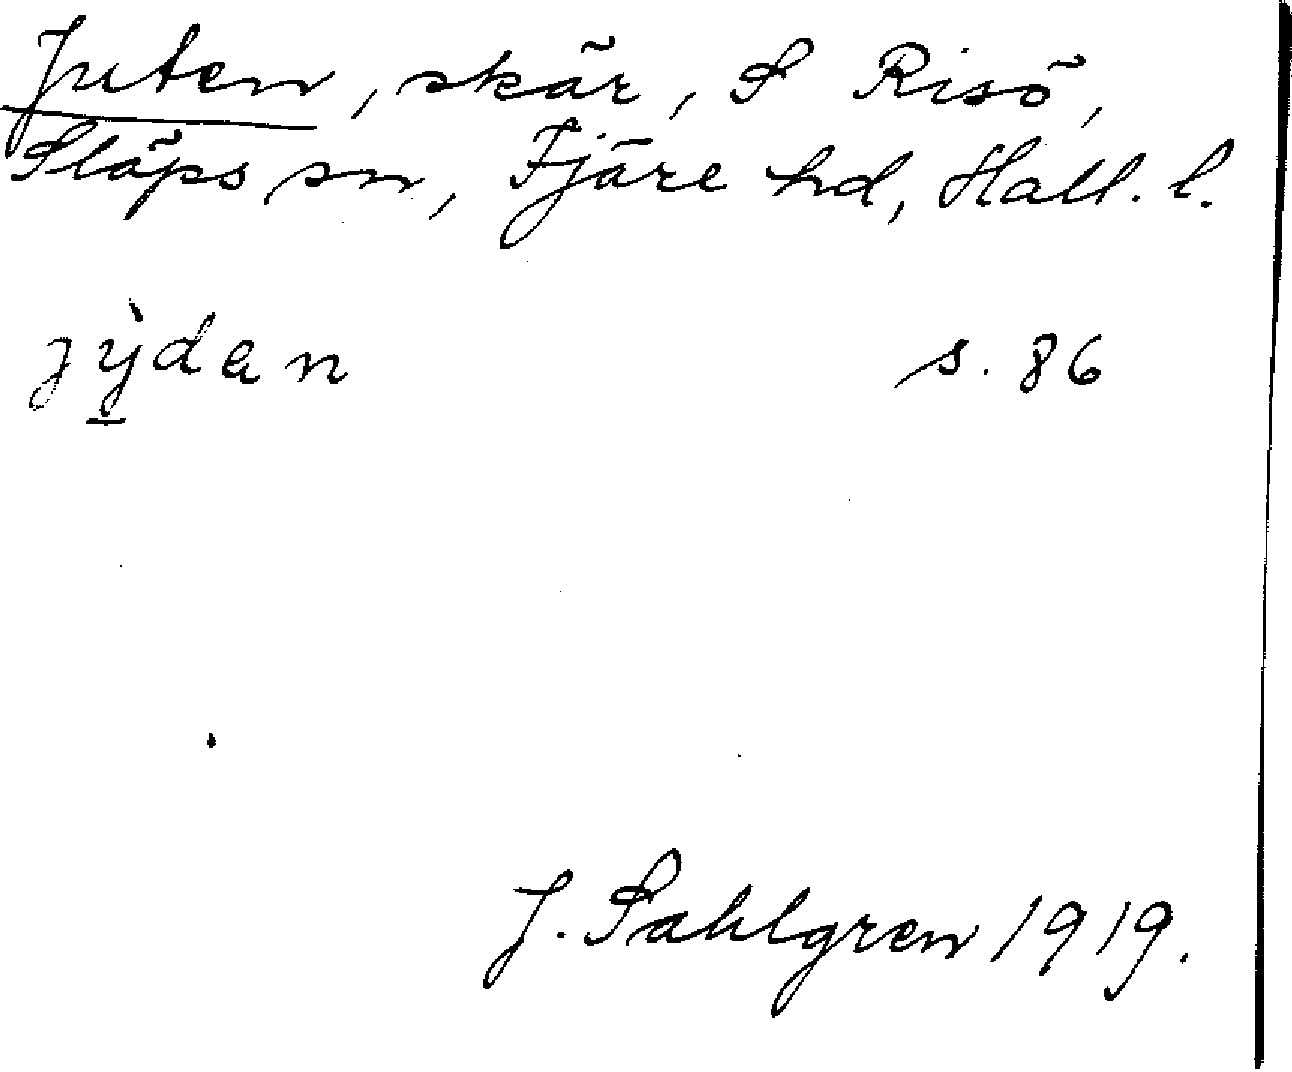 Juten, skär, S Risö,
Släps sn, Fjäre hd, Hall. l.
jỳ̲dan s. 86
J. Sahlgren 1919.